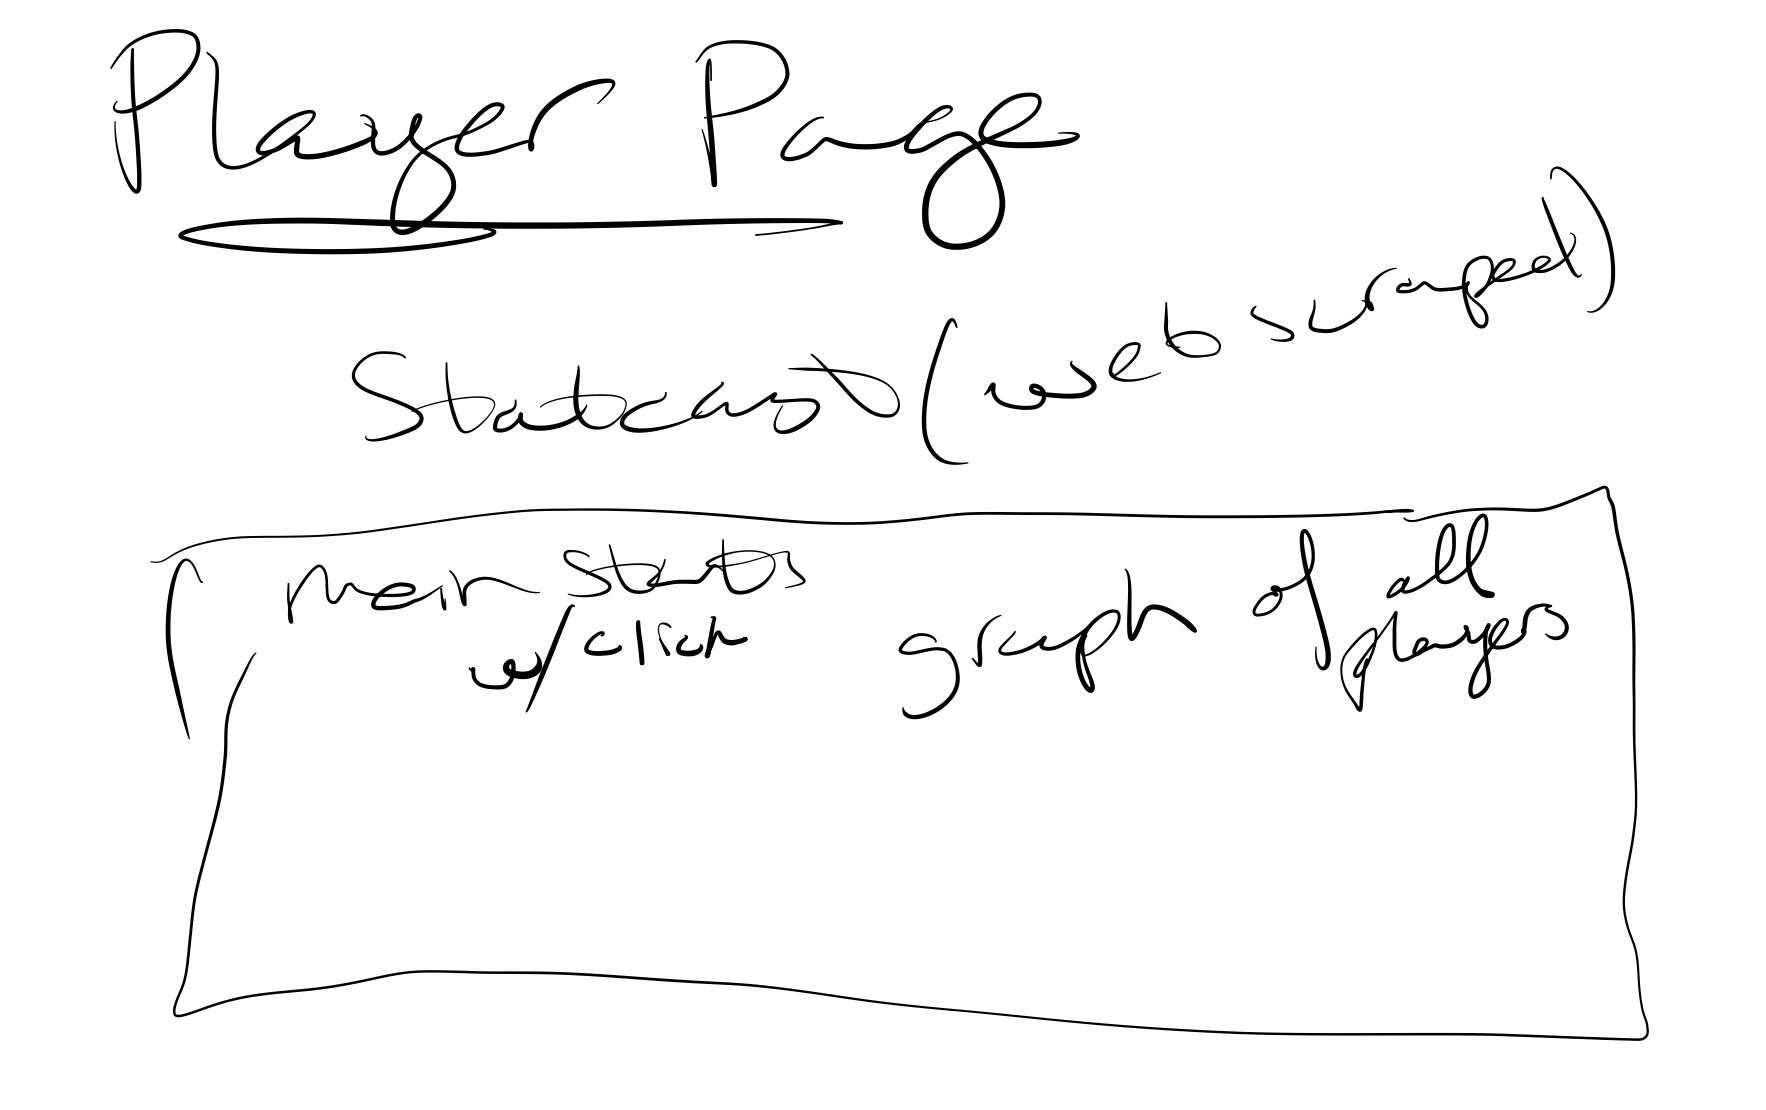 Player Page
Statcast (webscraped)
main stats graph of all
w/ click players